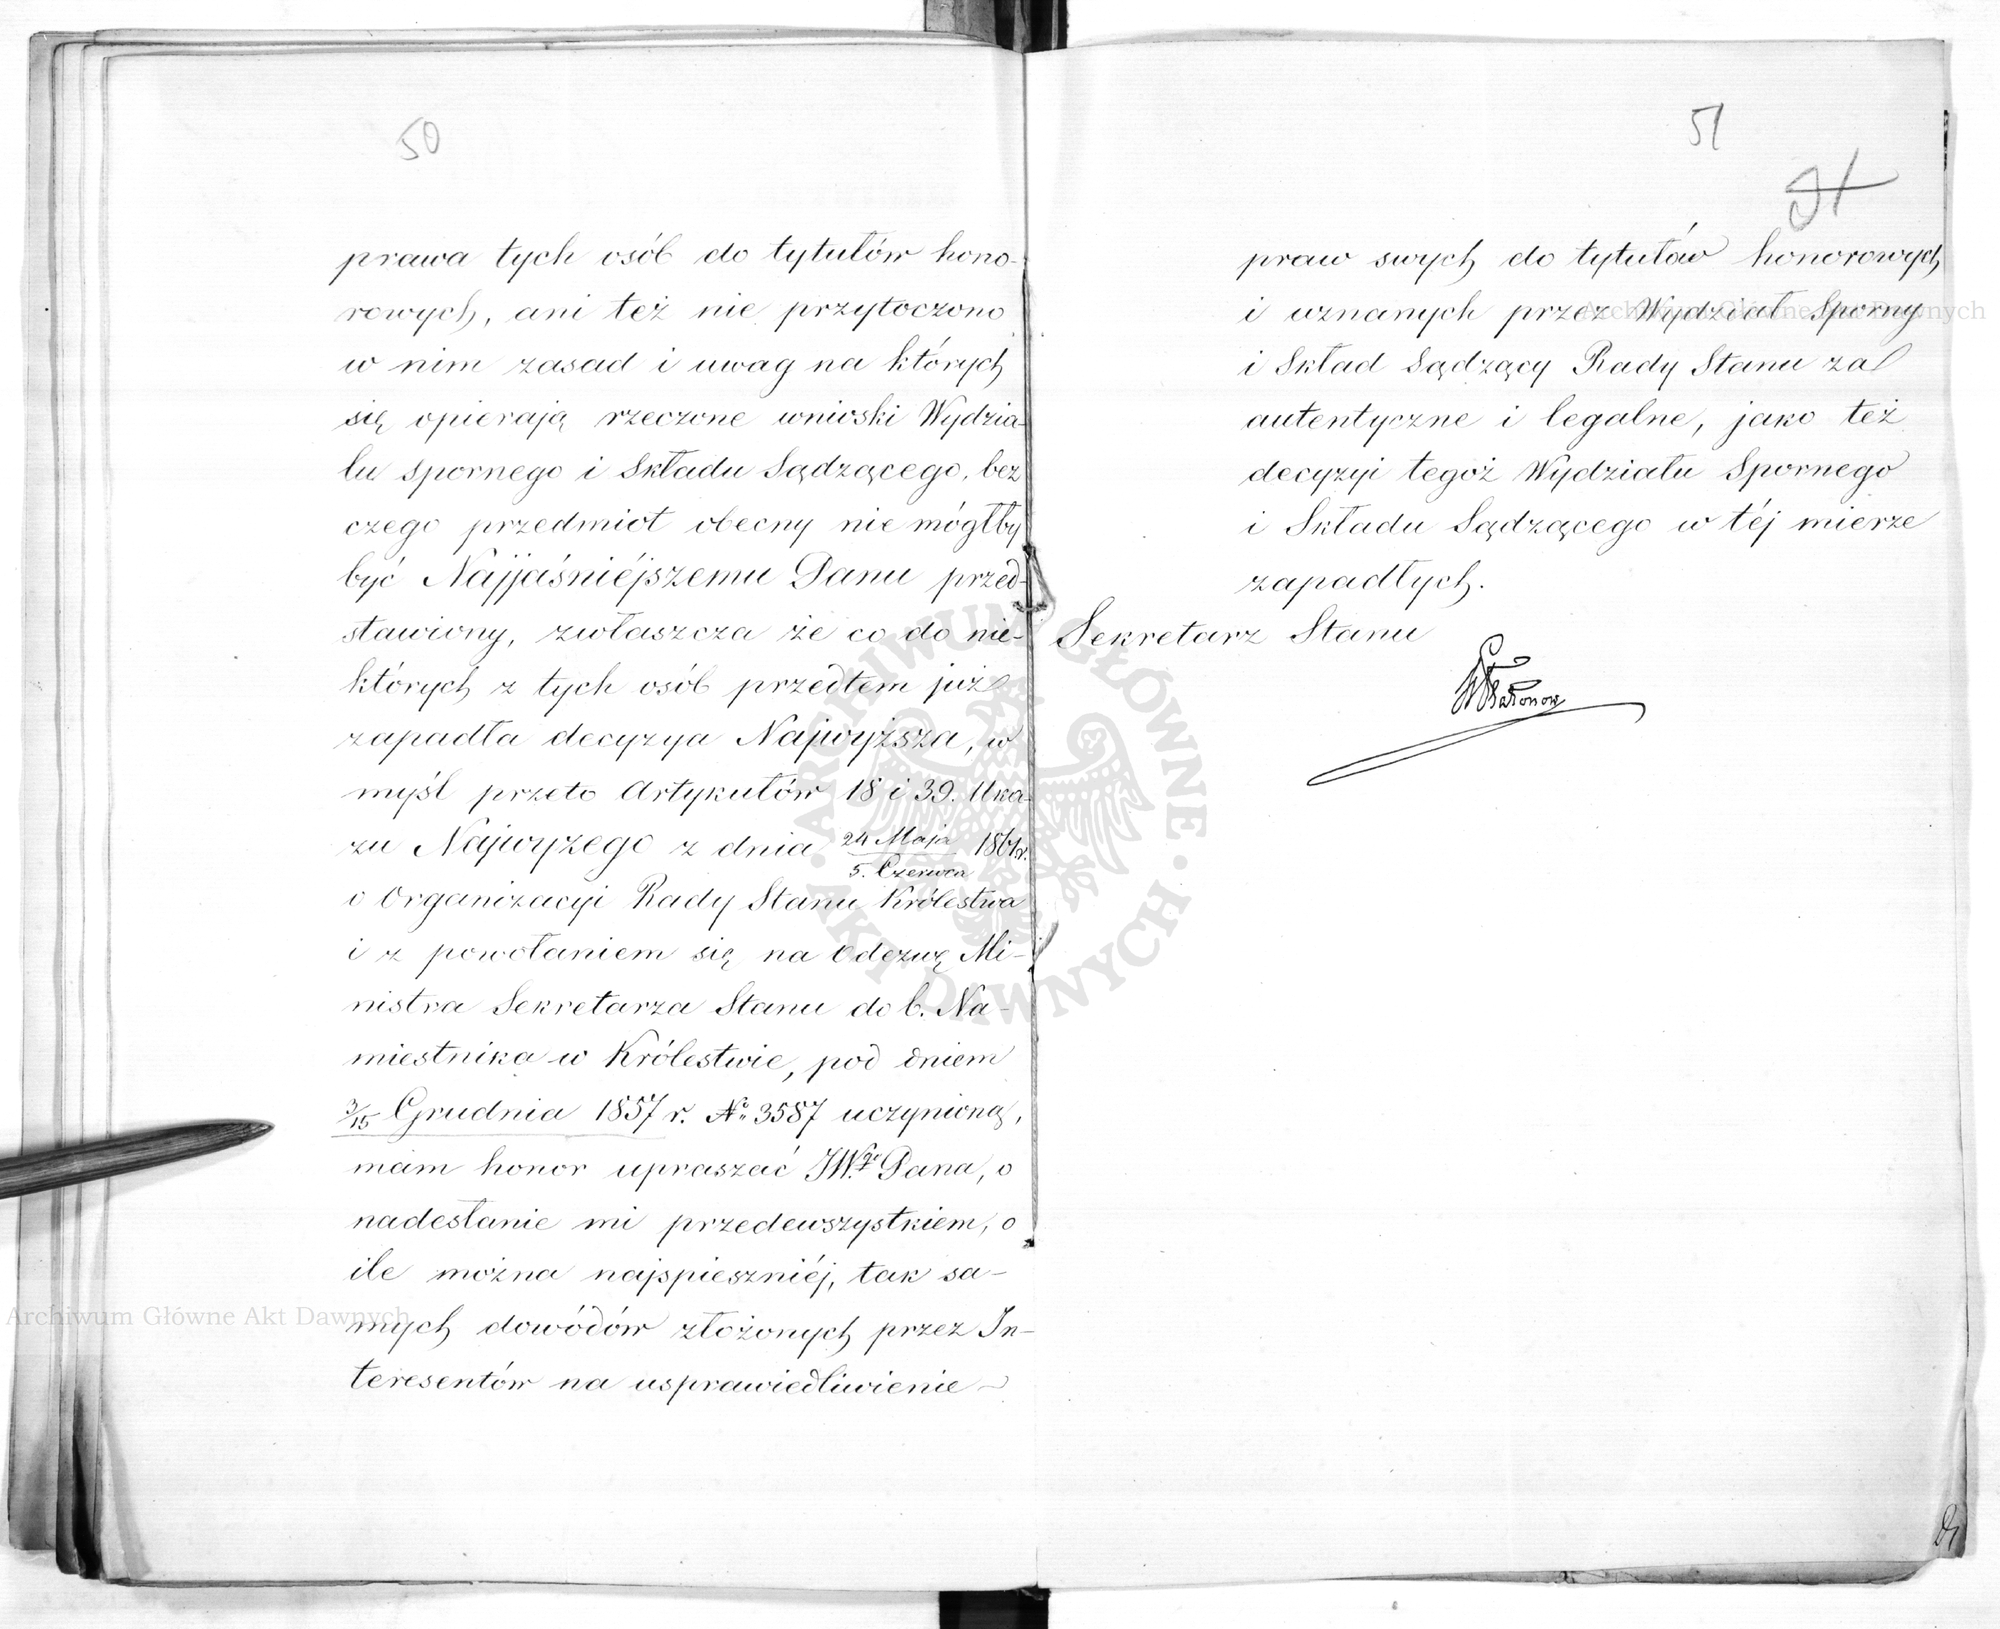 50
prawa tych osób do tytułów hono-
rowych, ani też nie przytoczono
w nim zasad i uwag na których
się opierają rzeczone wnioski Wydzia-
łu Spornego i Składu Sądzącego, bez
czego przedmiot obecny nie mógłby
być Najjaśniéjszemu Panu przed-
stawiony, zwłaszcza że co do nie-
których z tych osób przedtem już
zapadła decyzya Najwyższa, w
myśl przeto Artykułów 18 i 39. Uka-
zu Najwyzego z dnia 24 Maja / 5. Czerwca 1861 r.
o Organizacyi Rady Stanu Królestwa
i z powołaniem się na Odezwę Mi-
nistra Sekretarza Stanu do b. Na-
miestnika w Królestwie, pod dniem
3/15 Grudnia 1857 r. № 3587 uczynioną,
mam honor upraszać JW.go Pana, o
nadesłanie mi przedewszystkiem, o
ile można najspieszniéj, tak sa-
mych dowódów złożonych przez In-
teresentów na usprawiedliwienie
51
praw swych do tytułów honorowych
i uznanych przez Wydział Sporny
i Skład Sądzący Rady Stanu za
autentyczne i legalne, jako też
decyzyi tegoż Wydziału Spornego
i Składu Sądzącego w téj mierze
zapadłych.
Sekretarz Stanu
Archiwum Główne Akt Dawnych
Archiwum Główne Akt Dawnych
ARCHIWUM GŁÓWNE AKT DAWNYCH